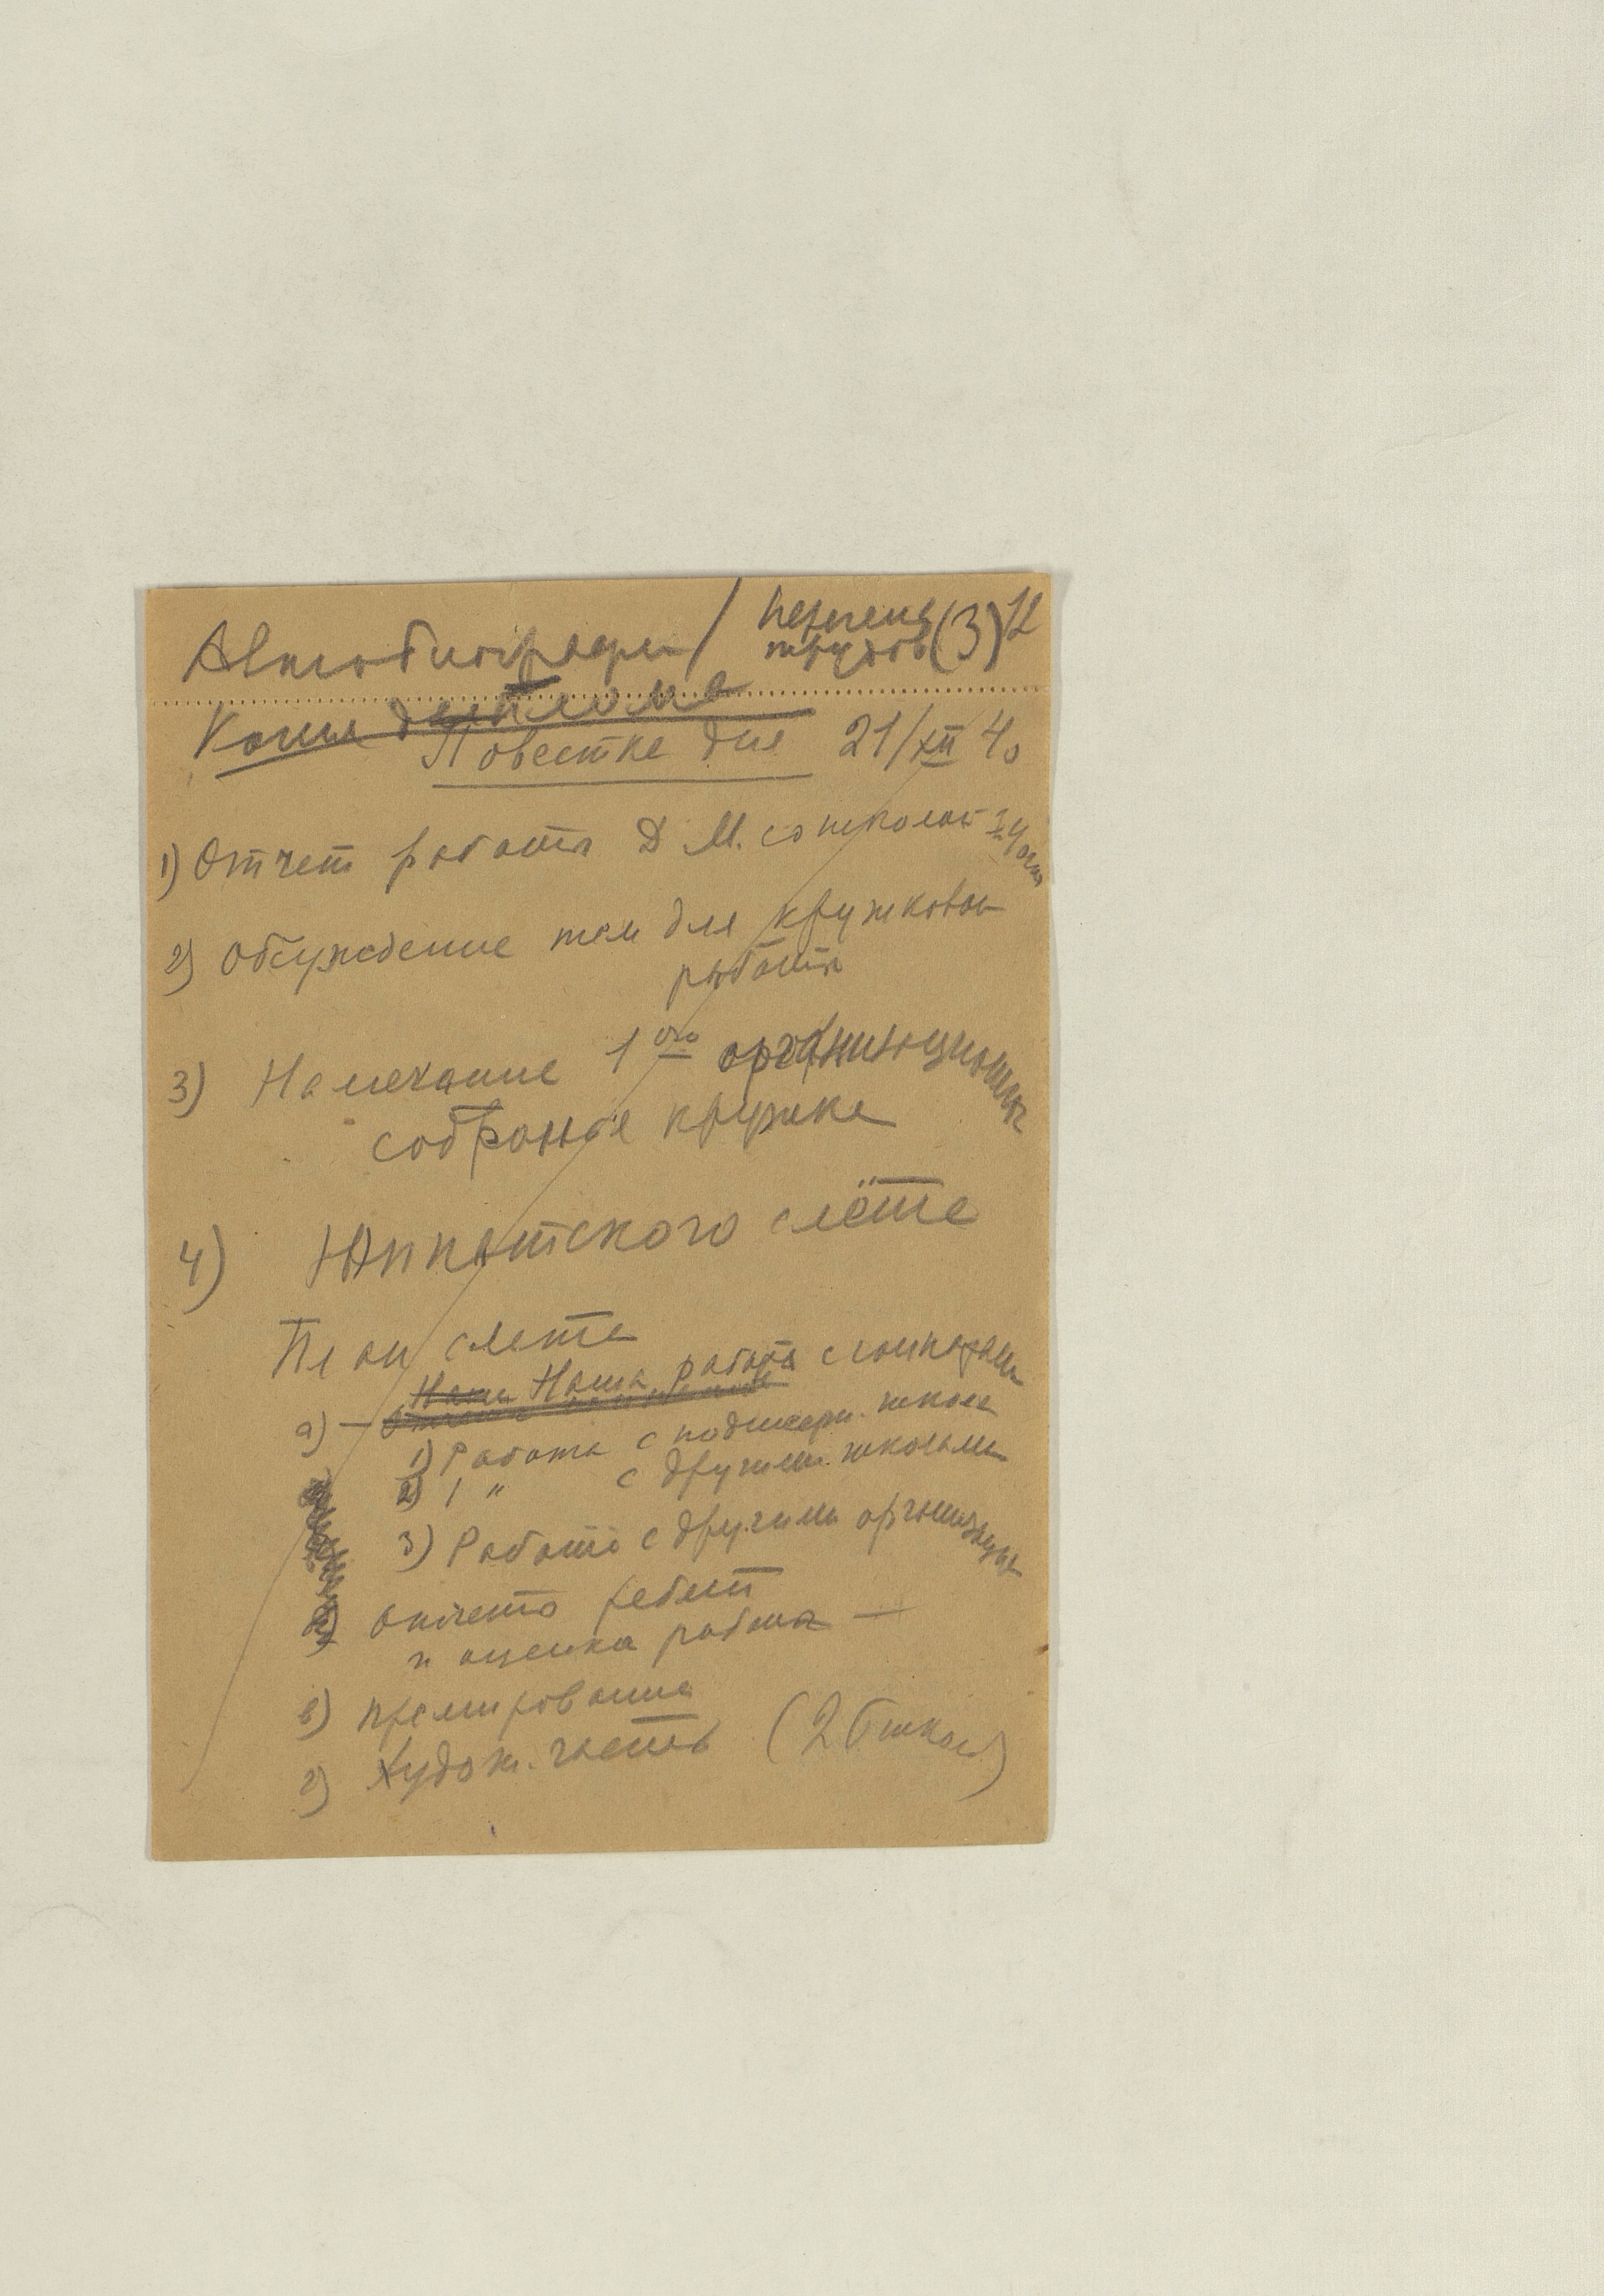 Автобиография / перечень трудов (3)
Копия диплома
Повестка дня 21/XII 40
1) Отчет работы Д. М.
2) Обсуждение тем для кружковой
работы
3) Намечание 1ого организационн
собрания кружка
4) Юннатского слёта
План слета
Наша работа с
а) —
1) Работа с подшефн. школ
2) 1 " с другими школами
3) Работа с другими организац
отчет ребят
и оценка работы —
в) премирование
г) Худож. часть (2